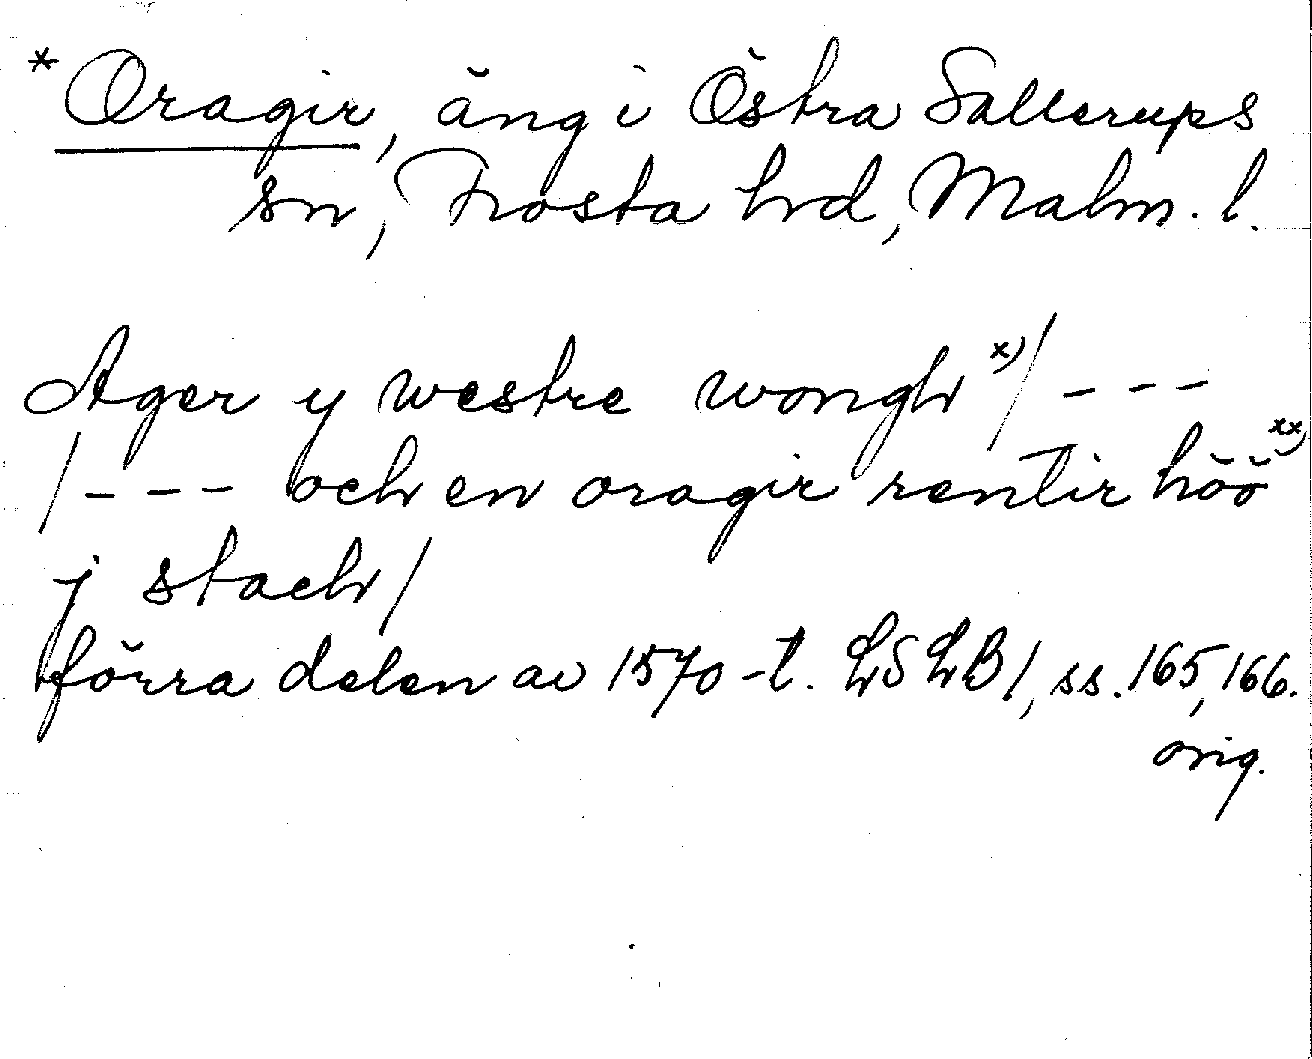 * Oragir, äng i Östra Sallerups
sn, Frosta hrd, Malm. l.
Ager y westre wongh x) / ---
/ --- och en oragir rentir höö xx)
j stach/
förra delen av 1570-t. LSLB 1, ss. 165, 166.
orig.